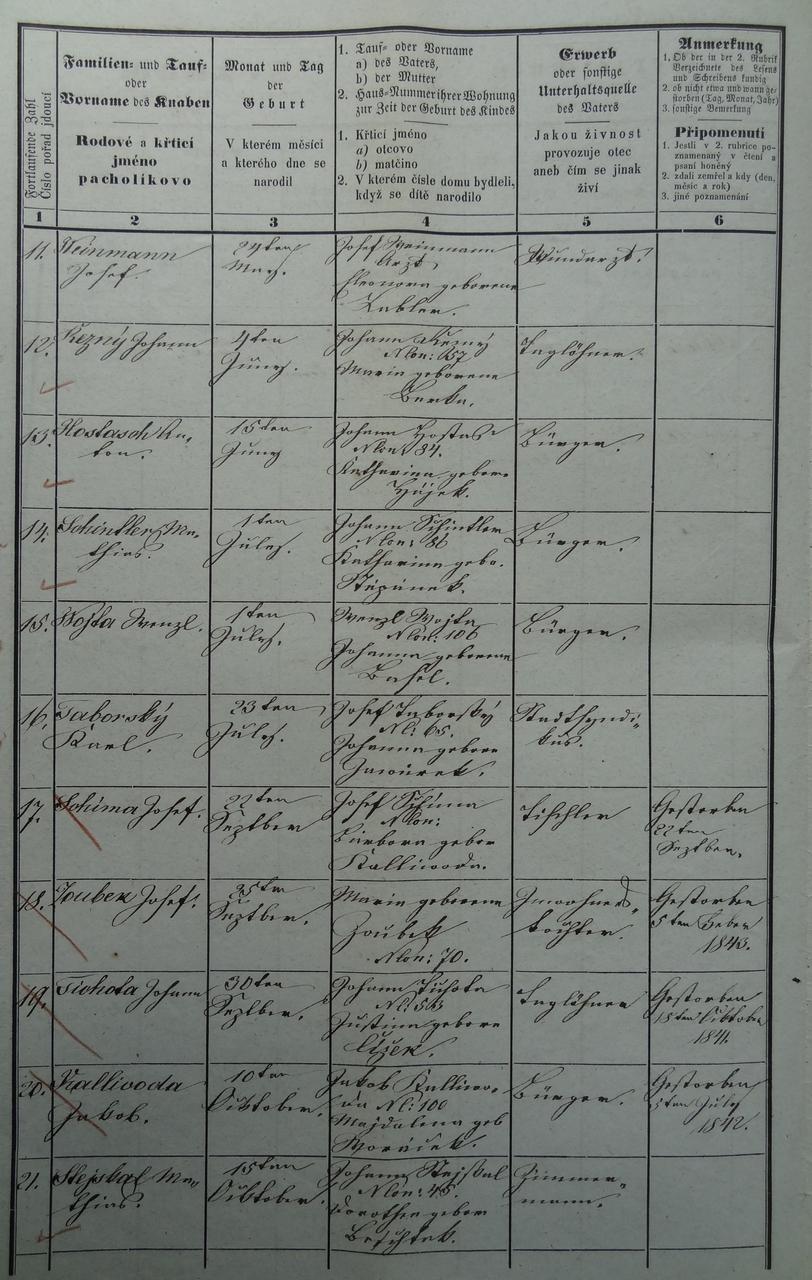 Fortlaufende Zahl
Číslo pořad jdoucí
Familien- und Tauf-
oder
Vorname des Knaben
Rodové a křticí
jméno
pacholíkovo
Monat und Tag
der
Geburt
V kterém měsíci
a kterého dne se
narodil
1. Tauf- oder Vorname
a) des Vaters,
b) der Mutter
2. Haus-Nummer ihrer Wohnung
zur Zeit der Geburt des Kindes
1. Křticí jméno
a) otcovo
b) matčino
2. V kterém čísle domu bydleli,
když se dítě narodilo
Erwerb
oder sonstige
Unterhaltsquelle
des Vaters
Jakou živnost
provozuje otec
aneb čím se jinak
živí
Anmerkung
1. Ob der in der 2. Rubrik
Verzeichnete des Lesens
und Schreibens kundig
2. ob nicht etwa und wann ge-
storben (Tag, Monat, Jahr)
3. sonstige Bemerkung
Připomenutí
1. Jestli v 2. rubrice po-
znamenaný v čtení a
psaní honěný
2. zdali zemřel a kdy (den,
měsíc a rok)
3. jiné poznamenání
1 2 3 4 5 6
11. Weinmann
Josef.
24ten
May.
Josef Weinmann
Arzt,
Eleonora geborene
Wundarzt.
12. Řezný Johann
4ten
Juny.
Johann Řezný
NCon: 157
Maria geborene
Berka.
Taglöhner.
13. Hostasch An-
ton.
15ten
Juny
Johann Hostas
NCon: 84.
Katharina gebore
Hájek.
Bürger.
14. Schintler Ma-
thias.
1ten
July.
Johann Schintler
NCon: 86
Katharina gebo.
Štěpánek.
Bürger.
15. Wojta Wenzl.
1ten
July.
Wenzl Wojta
NCon: 106
Johanna geborene
Bürger.
16. Taborský
Karl.
23ten
July.
Josef Taborský
NC: 65.
Johanna gebore
Jaworek.
Stadtsyndi-
kus.
17. Schima Josef.
22ten
Septber
Josef Schima
NCon:
Barbora gebor
Kalliwoda.
Tischler
Gestorben
22ten
Septber.
18. Zoubek Josef.
25ten
Septber.
Maria geborene
Zoubek
NCon: 70.
Inwohners-
tochter.
Gestorben
5ten
1843.
19. Tichota Johann
30ten
Septber.
Johann Tichota
NC: 53
Justina gebore
Čížek.
Taglöhner
Gestorben
18ten Oktober
1841.
20. Kallivoda
Jakob.
10ten
Oktober.
Jakob Kalliwo-
da NC: 100
Majdalena geb
Woráček.
Bürger.
Gestorben
July
1842.
21. Stejskal Ma-
thias.
15ten
Oktober.
Johann Stejskal
NCon: 45.
Dorothea gebor
Zimmer-
mann.